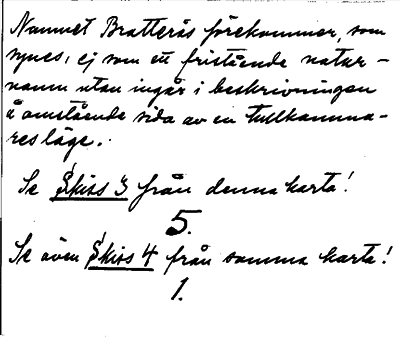 Namnet Bratterås förekommer, som
synes, ej som ett fristående natur-
namn utan ingår i beskrivningen
å omstående sida av en tullkamma-
res läge.
Se Skiss 3 från denna karta!
5.
Se även Skiss 4 från samma karta!
1.